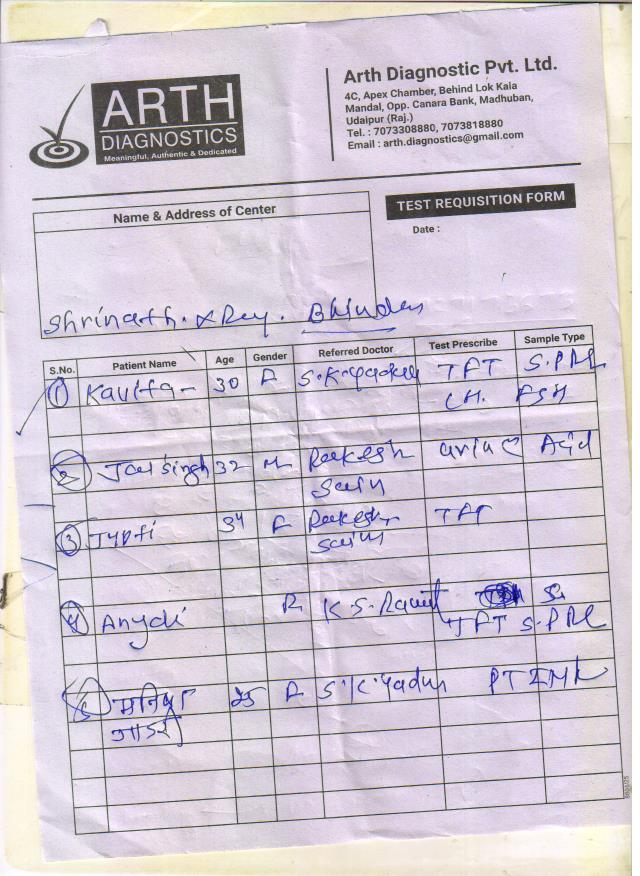 ARTH
DIAGNOSTICS
Meaningful, Authentic & Dedicated
Arth Diagnostic Pvt. Ltd.
4C, Apex Chamber, Behind Lok Kala
Mandal, Opp. Canara Bank, Madhuban,
Udaipur (Raj.)
Tel. : 7073308880, 7073818880
Email : arth.diagnostics@gmail.com
Name & Address of Center
TEST REQUISITION FORM
Date :
Shrinath. X Ray. Bhinder
S.No. Patient Name Age Gender Referred Doctor Test Prescribe Sample Type
1 Kavita 30 F S.K.Yadav TFT S.PRL
LH. FSH
2 Jai Singh 32 M Rakesh uric Acid
Sain
3 Jyoti 34 F Rakesh TFT
Sain
4 F K.S. TFT S.PRL
5 25 F S.K.Yadav PT INR